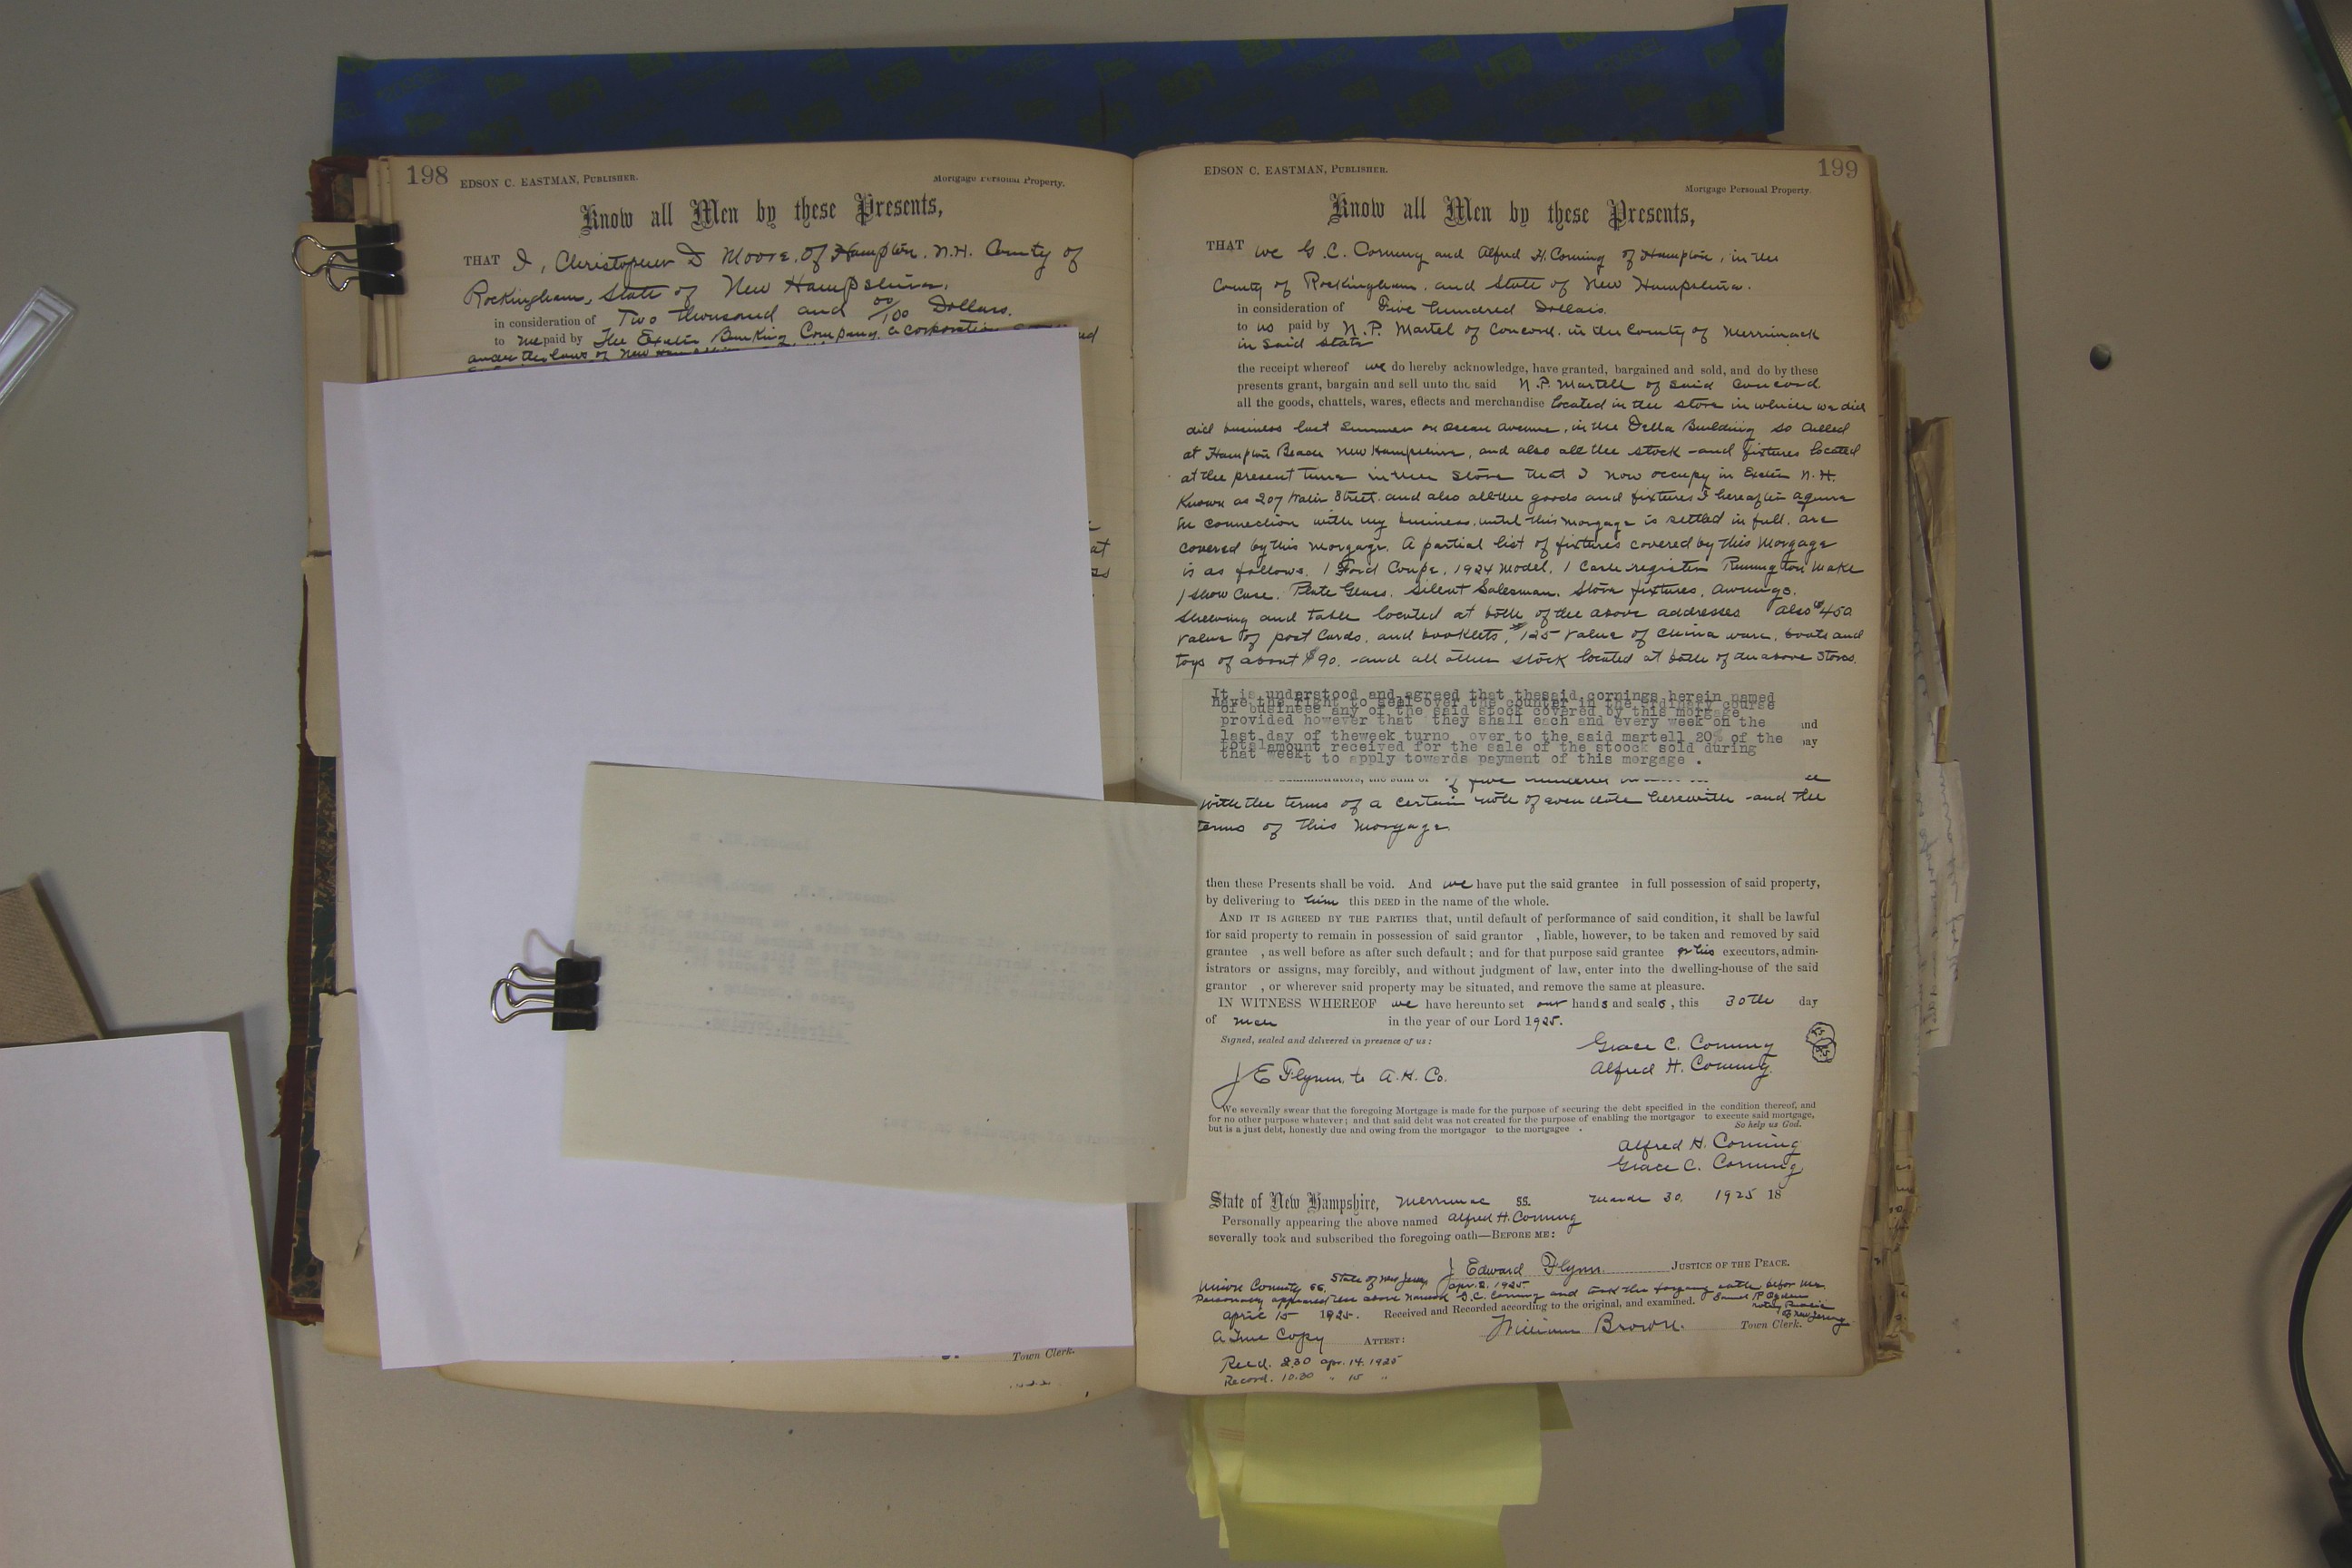 198 EDSON C. EASTMAN, PUBLISHER. Mortgage Personal Property.
Know all Men by these Presents,
THAT I, Christopher D Moore, of Hampton. N.H. County of
Rockingham, State of New Hampshire.
in consideration of Two thousand and 00/100 Dollars.
to me paid by The Exeter Banking Company, a corporation
under the laws of New
at
Town Clerk.
199
EDSON C. EASTMAN, PUBLISHER.
Mortgage Personal Property.
Know all Men by these Presents,
THAT we G.C. Corning and Alfred H. Corning of Hampton, in the
County of Rockingham, and State of New Hampshire.
in consideration of Five hundred Dollars.
to us paid by N.P. Martel of Concord. in the County of Merrimack
in said State
the receipt whereof we do hereby acknowledge, have granted, bargained and sold, and do by these
presents grant, bargain and sell unto the said N.P. Martell of said Concord
all the goods, chattels, wares, effects and merchandise located in the store in which we did
did business last summer on Ocean Avenue, in the Della Building so called
at Hampton Beach New Hampshire, and also all the stock and fixtures located
at the present time in the store that I now occupy in Exeter N.H.
Known as 207 Water Street. and also all the goods and fixtures I hereafter aquire
in connection with my business, until this morgage is settled in full, are
covered by this morgage. A partial list of fixtures covered by this Morgage
is as follows. 1 Ford Coupe, 1924 Model, 1 Cash register Remington Make
1 show Case. Plate Glass. Silent Salesman. Store fixtures, Awnings.
shelving and table located at both of the above addresses also $450
value of post Cards, and booklets, $125 value of China ware, boats and
toys of about $90. and all other stock located at both of the above stores.
It is understood and agreed that thesaid cornings herein named
have the right to seel over the counter in the ordinary course
of business any of the said stock covered by this morgage
provided however that they shall each and every week on the
last day of theweek turno over to the said martell 20% of the
totalamount received for the sale of the stoock sold during
that weekt to apply towards payment of this morgage .
and
pay
administrators, the sum of of five hundred
with the terms of a certain note of even date herewith and the
terms of this Morgage
then these Presents shall be void. And we have put the said grantee in full possession of said property,
by delivering to him this DEED in the name of the whole.
AND IT IS AGREED BY THE PARTIES that, until default of performance of said condition, it shall be lawful
for said property to remain in possession of said grantor , liable, however, to be taken and removed by said
grantee , as well before as after such default ; and for that purpose said grantee or his executors, admin-
istrators or assigns, may forcibly, and without judgment of law, enter into the dwelling-house of the said
grantor , or wherever said property may be situated, and remove the same at pleasure.
IN WITNESS WHEREOF we have hereunto set our hands and seals, this 30th day
of Mch in the year of our Lord 1925.
Signed, sealed and delivered in presence of us :
Grace C. Corning
Alfred H. Corning
J E Flynn to A.H. Co.
We severally swear that the foregoing Mortgage is made for the purpose of securing the debt specified in the condition thereof, and
for no other purpose whatever ; and that said debt was not created for the purpose of enabling the mortgagor to execute said mortgage,
but is a just debt, honestly due and owing from the mortgagor to the mortgagee . So help us God.
Alfred H. Corning
Grace C. Corning
State of New Hampshire, Merrimac ss. March 30. 1925 18
Personally appearing the above named Alfred H. Corning
severally took and subscribed the foregoing oath—BEFORE ME:
J Edward Flynn. JUSTICE OF THE PEACE.
Union County ss. State of New Jersey Apr. 2. 1925
Personally appeared the above named G.C. Corning and took the foregoing oath before me.
Samuel R Ogden
Notary Public
of New Jersey
April 15 1925. Received and Recorded according to the original, and examined.
A True Copy ATTEST: William Brown. Town Clerk.
Recd. 8.30 Apr. 14. 1925
Record. 10.30 " 15 "